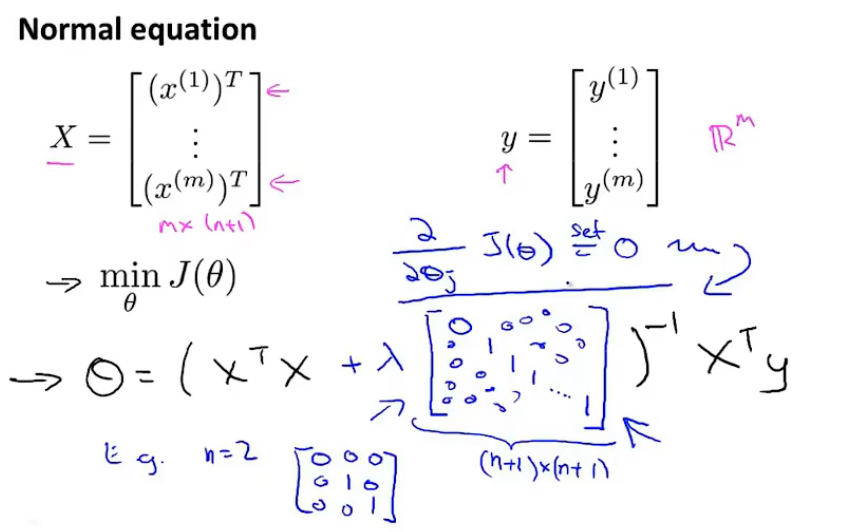 Normal equation
X = [ (x^(1))^T ⋮ (x^(m))^T ] ←  ←
y = [ y^(1) ⋮ y^(m) ] ℝ^m
↑
m× (n+1)
∂/∂θ_j J(θ) set = 0
→ min_θ J(θ)
→ θ = ( X^T X + λ [ 0 0 0 0 0 1 0 0 1 0 0 0 1 .... 0 0 1 ] )^-1 X^T y
(n+1)×(n+1)
E.g. n=2
0 0 0
0 1 0
0 0 1